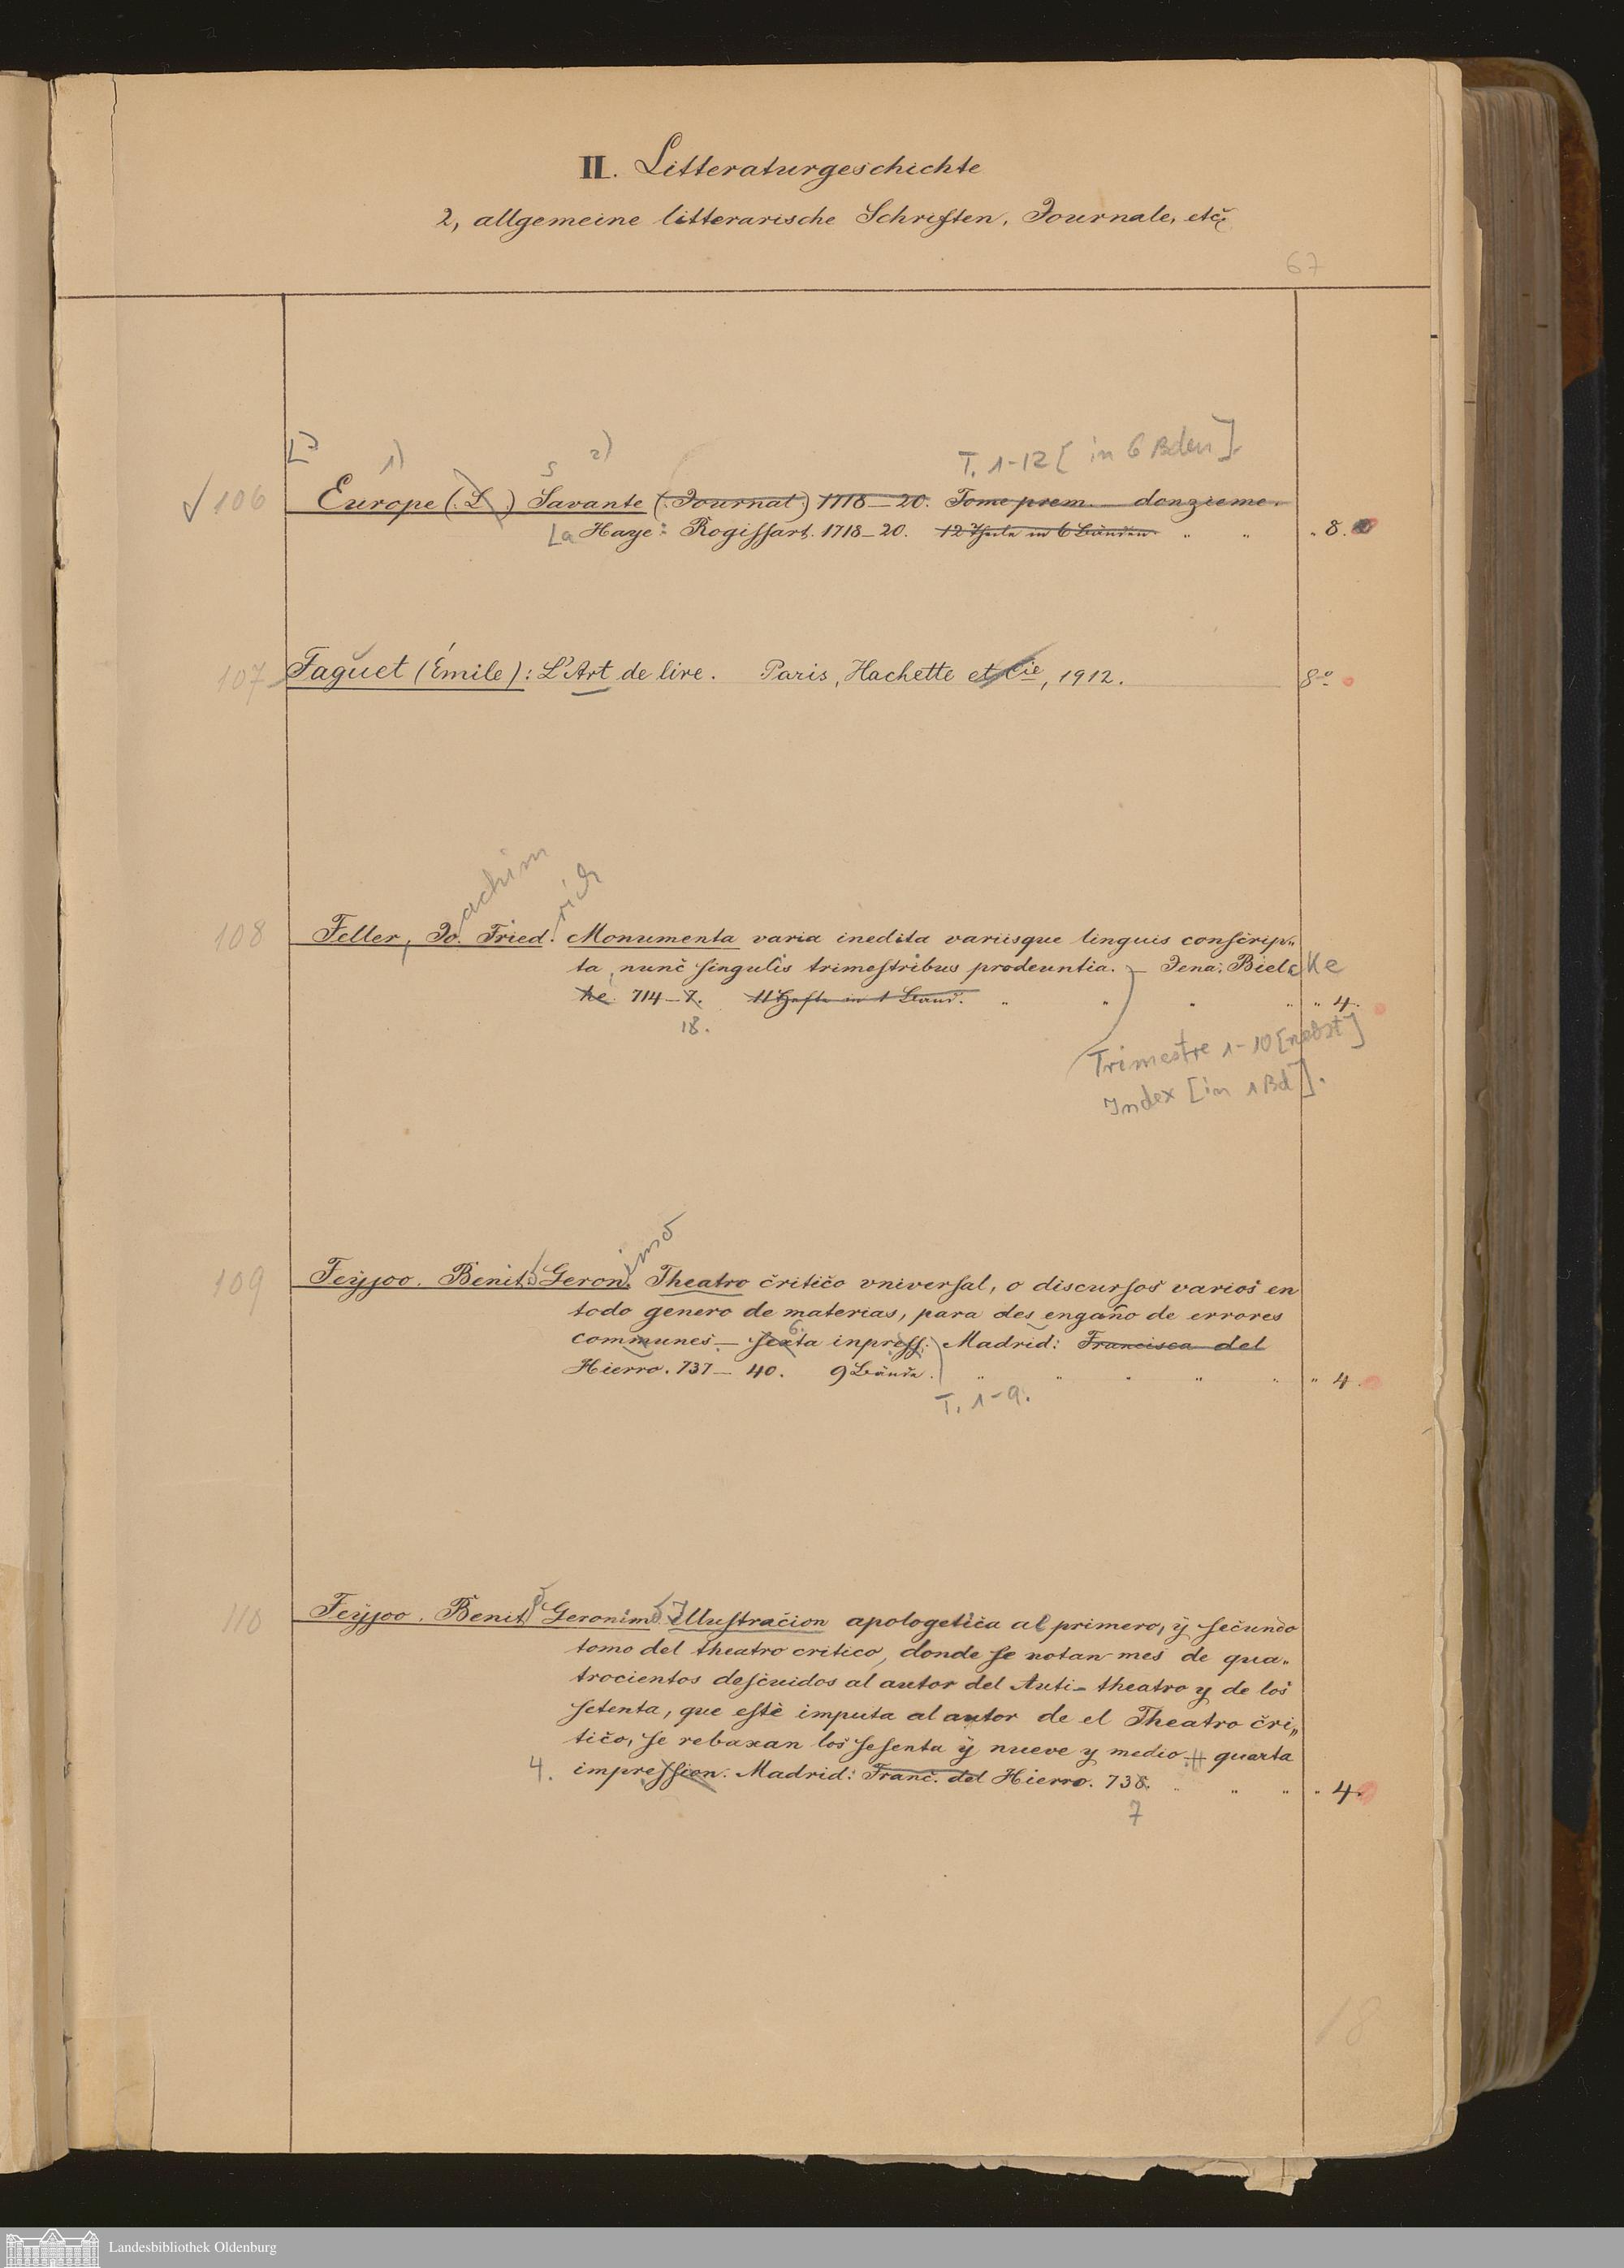 II. Litteraturgeschichte
2, allgemeine litterarische Schriften, Journale, etc.
67
T. 1-12 [in 6 Bden].
1) s 2)
√ 106 Europe (L') Savante (Journal) 1718—20. Tome prem. — donzieme.
La Haye: Rogissart. 1718—20. 12 Theile in 6 Bänden „ „ „ 8.
107 Faguet (Émile): L'Art de lire. Paris, Hachette et Cie, 1912. 8º
achim rich
108 Feller, Jo. Fried. Monumenta varia inedita variisque linguis conscrip„
ta, nunc singulis trimestribus prodeuntia. — Jena; Biel ke
ke 714—7. 11 Hefte in 1 Band. „ „ „ „ „ 4.
18.
Trimestre 1-10 [nebst]
Index [in 1 Bd].
imo
109 Feÿjoo. Benito Geron. Theatro critico vniversal, o discursos varios en
todo genero de materias, para des engaño de errores
6.
communes — sexta inpress. Madrid: Francisca del
Hierro. 737—40. 9 Bände. „ „ „ „ „ „ 4.
T. 1-9.
110 Feÿjoo. Benito Geronimo illustracion apologetica al primero, ÿ secundo
tomo del theatro critico, donde se notan mes de qua„
trocientos descuidos al autor del Anti-theatro y de los
setenta, que estè imputa al autor de el Theatro cri„
tico, se rebaxan los sesenta ÿ nueve y medio — quarta
4. impression. Madrid: Franc. del Hierro. 738. „ „ „ „ 4.
7
18
Landesbibliothek Oldenburg